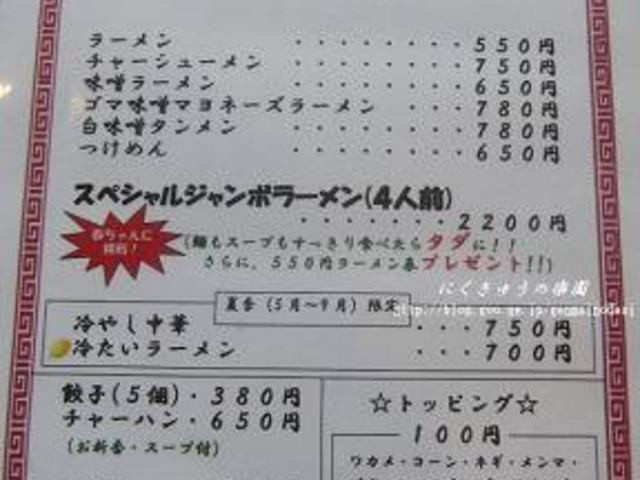 ラーメン ・・・・・・・・550円
チャーシューメン ・・・・・・・・750円
味噌ラーメン ・・・・・・・・650円
ゴマ味噌マヨネーズラーメン ・・・780円
白味噌タンメン ・・・・・・・・780円
つけめん ・・・・・・・・650円
スペシャルジャンボラーメン(4人前)
・・・・・・・2200円
春ちゃんに
挑戦!
(麺もスープもすっきり食べたらタダに!!
さらに、550円ラーメン券プレゼント!!)
にくきゅうの楽園
夏季(5月~9月)限定
冷やし中華 ・・・750円
冷たいラーメン ・・・700円
餃子(5個)・380円
チャーハン・650円
(お新香・スープ付)
☆トッピング☆
100円
ワカメ・コーン・ネギ・メンマ・